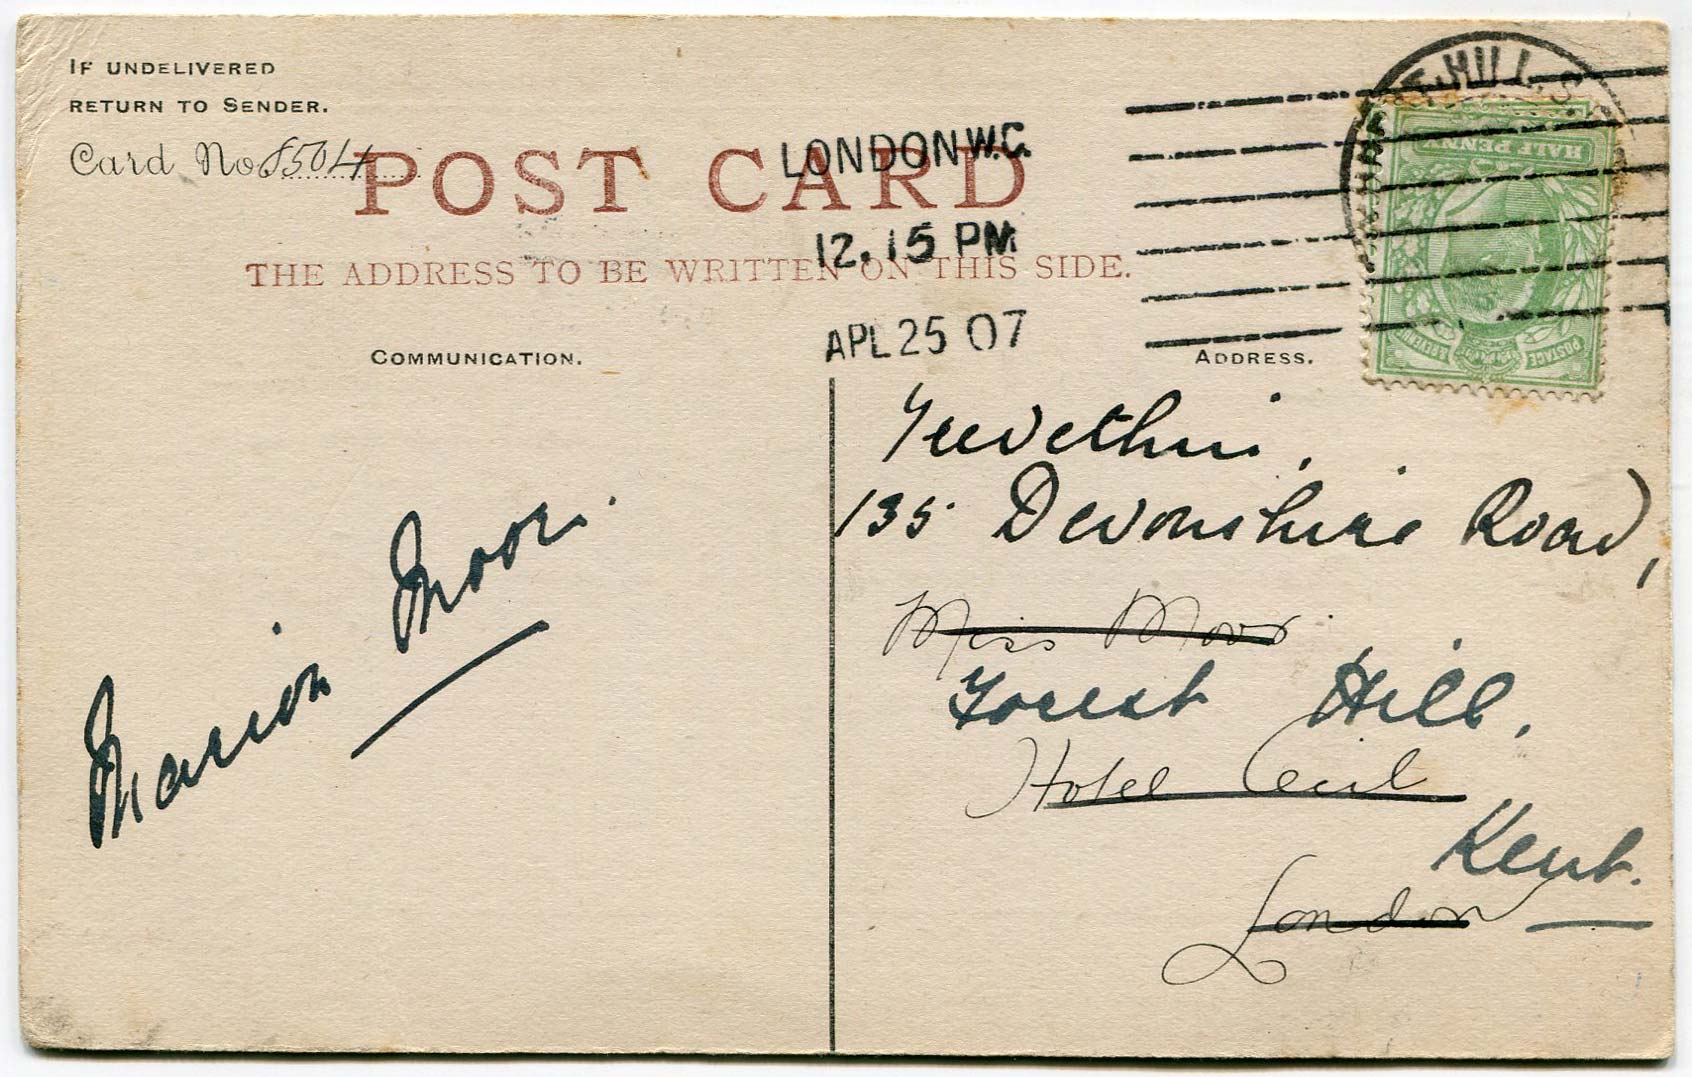 IF UNDELIVERED
RETURN TO SENDER.
Card No 8504
POST CARD
THE ADDRESS TO BE WRITTEN ON THIS SIDE.
LONDON W.C.
12.15 PM
APL 25 07
HILL. S.
HALF PENNY
POSTAGE
& REVENUE
COMMUNICATION.
Marion Moore.
ADDRESS.
135 Devonshire Road,
Miss Moore
Forest Hill,
Hotel Cecil
Kent.
London